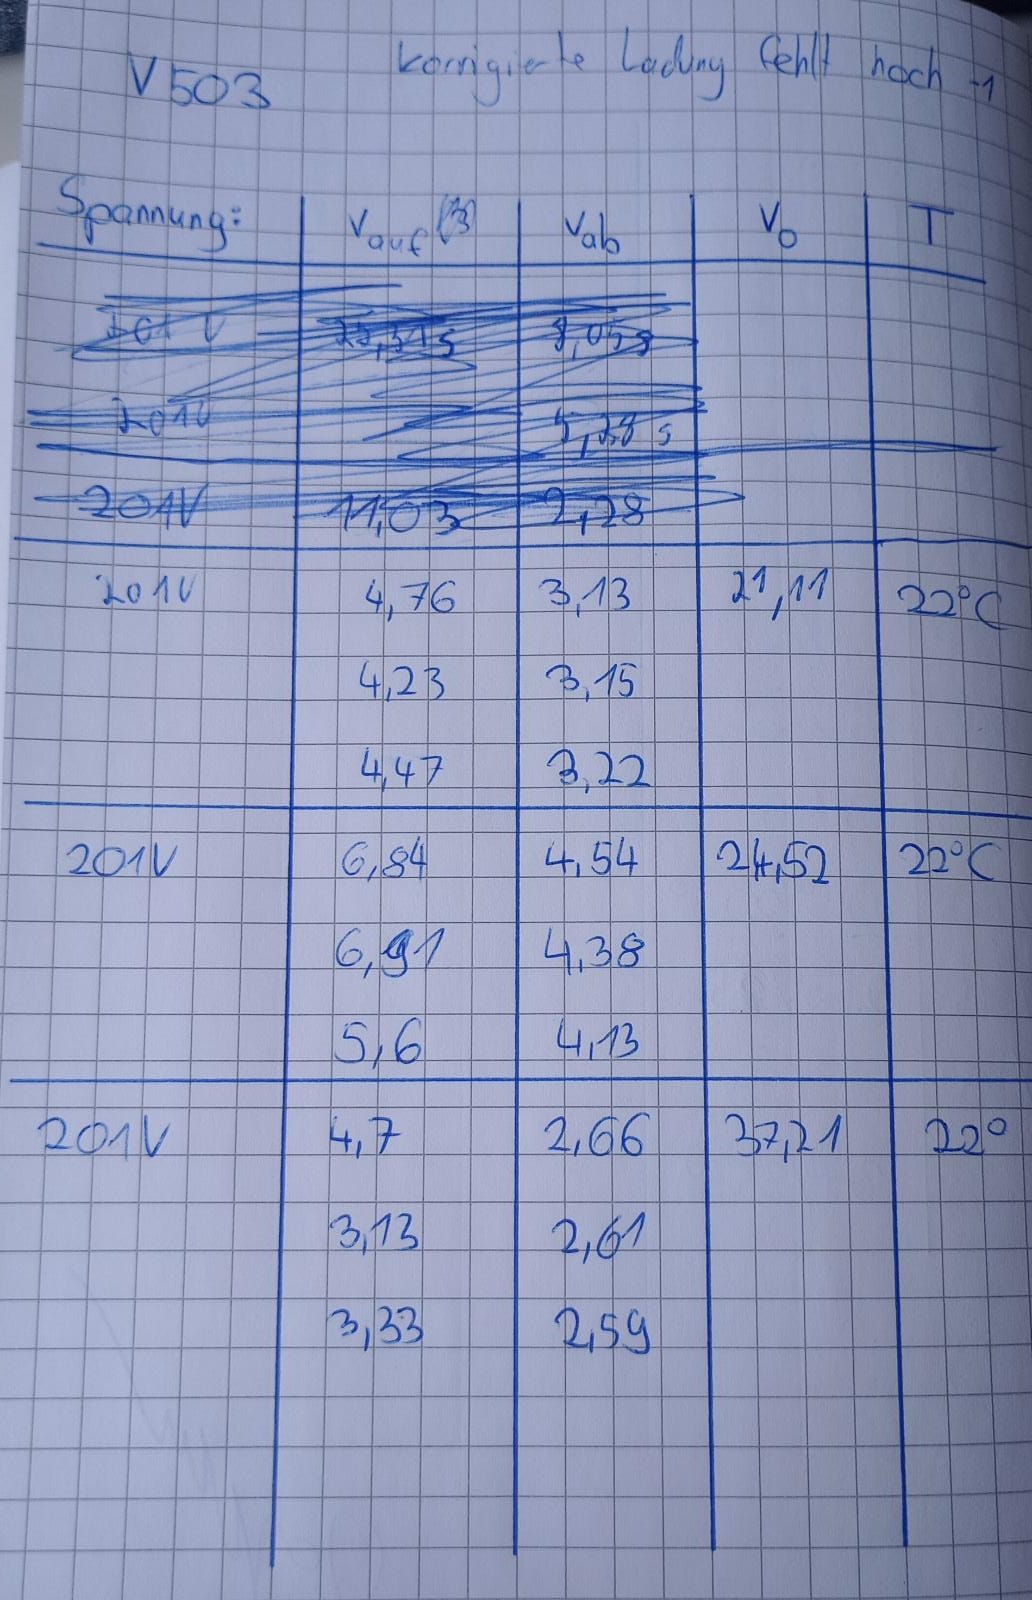 V503 korrigierte Ladung fehlt hoch -1
Spannung: Vauf Vab V0 T
201V 5,28 s
201V 11,03 2,28
201V 4,76 3,13 21,11 22°C
4,23 3,15
4,47 3,22
201V 6,84 4,54 24,52 22°C
6,91 4,38
5,6 4,13
201V 4,7 2,66 37,21 22°
3,13 2,61
3,33 2,59